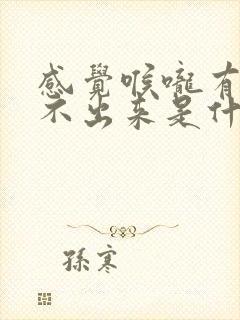 感覺喉嚨有
不出来是什
孫寒